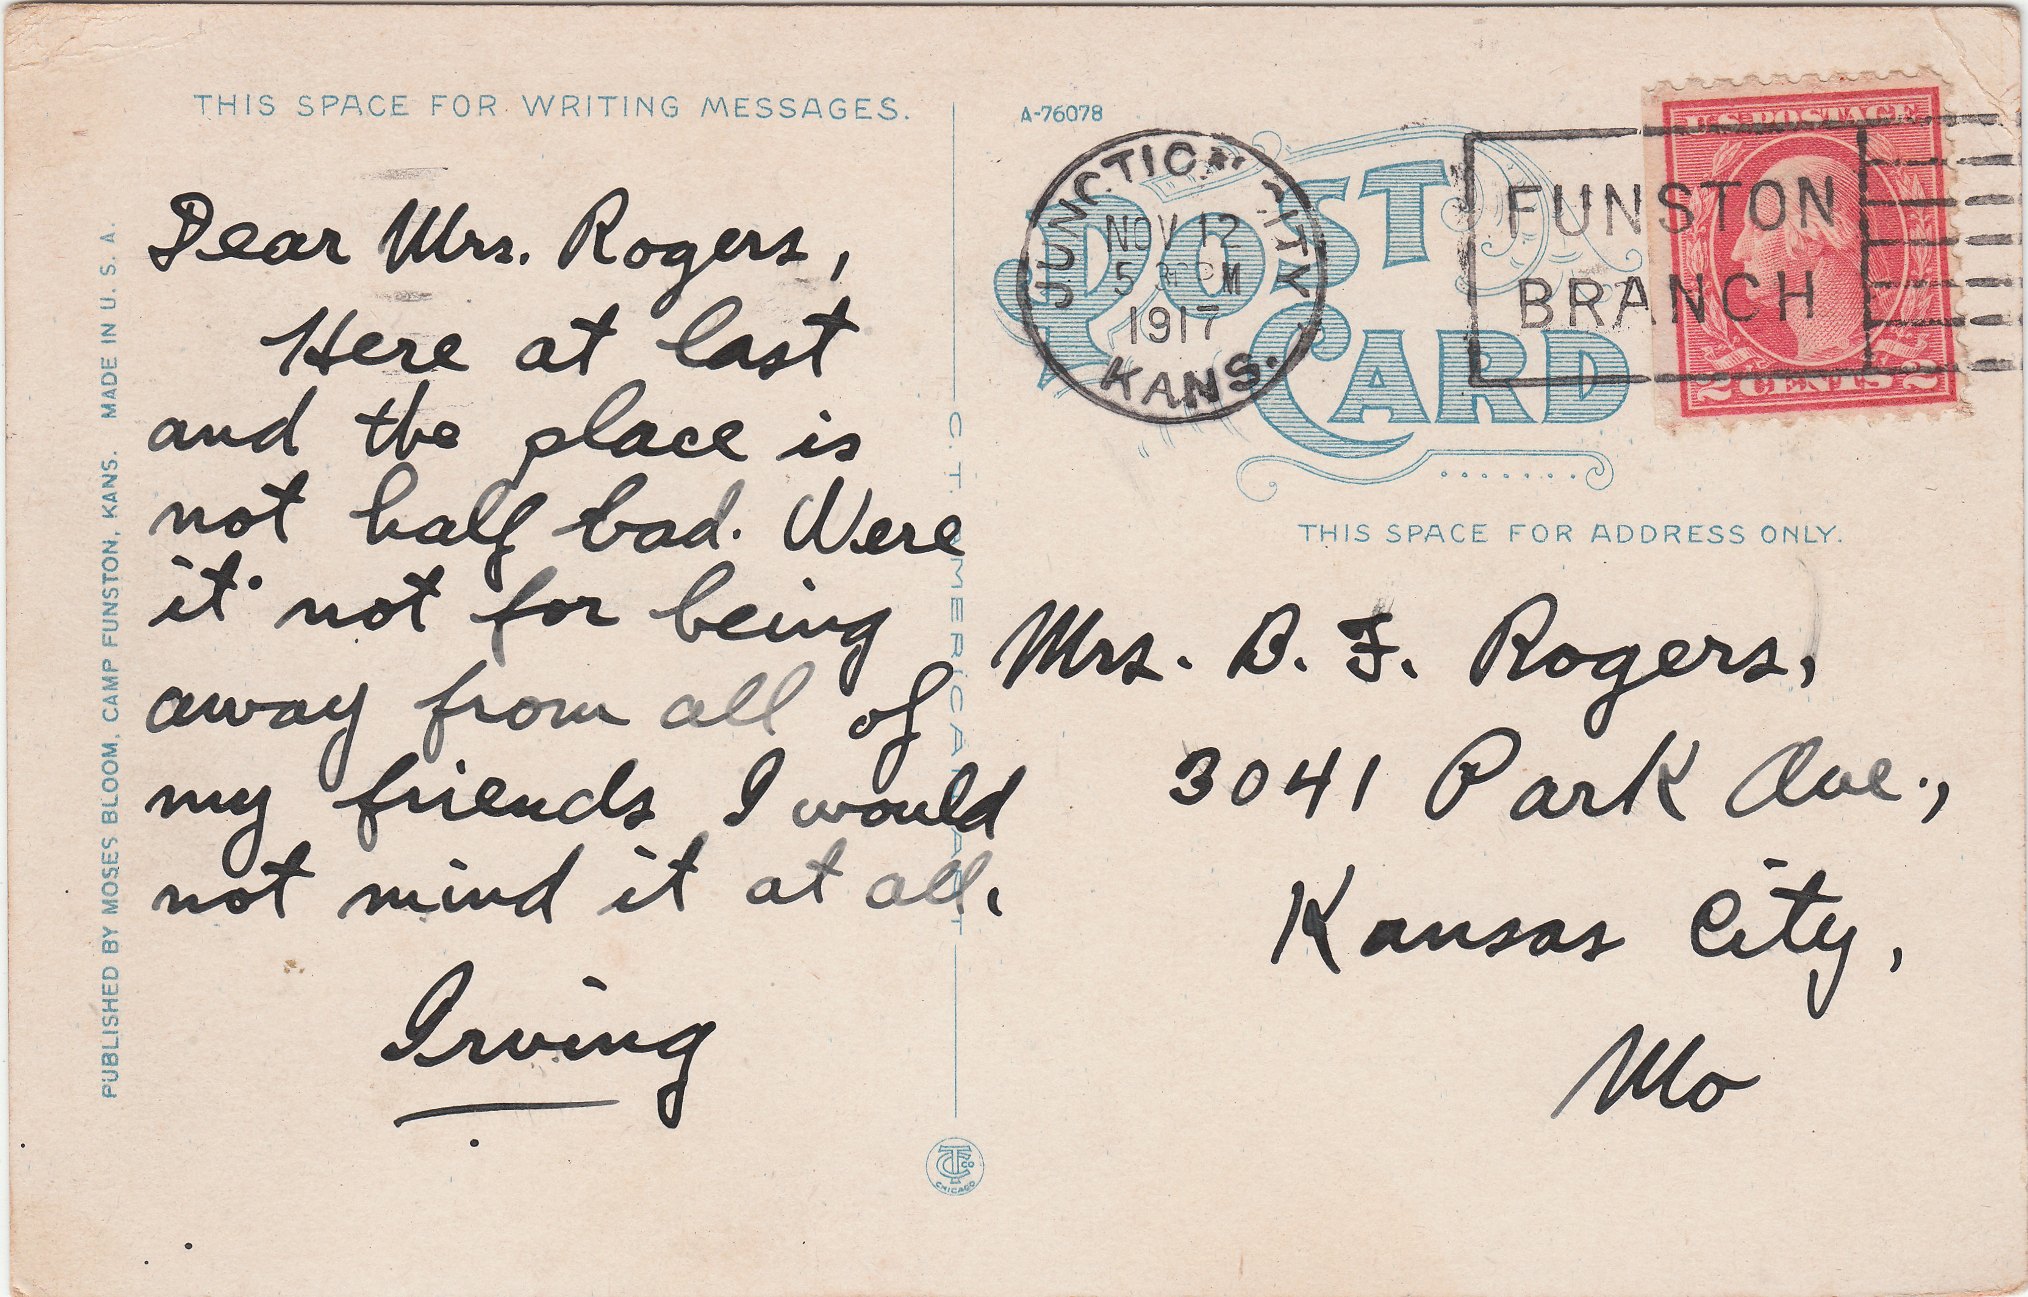 THIS SPACE FOR WRITING MESSAGES.
Dear Mrs. Rogers,
Here at last
and the place is
not half bad. Were
it not for being
away from all of
my friends I would
not mind it at all.
Irving
PUBLISHED BY MOSES BLOOM, CAMP FUNSTON, KANS. MADE IN U. S. A.
C. T. AMERICAN ART
CT CO
CHICAGO
A-76078
POST CARD
JUNCTION CITY
NOV 12
5 30 PM
1917
KANS.
FUNSTON
BRANCH
U.S. POSTAGE
2 CENTS 2
THIS SPACE FOR ADDRESS ONLY.
Mrs. B. F. Rogers,
3041 Park Ave.,
Kansas City,
Mo